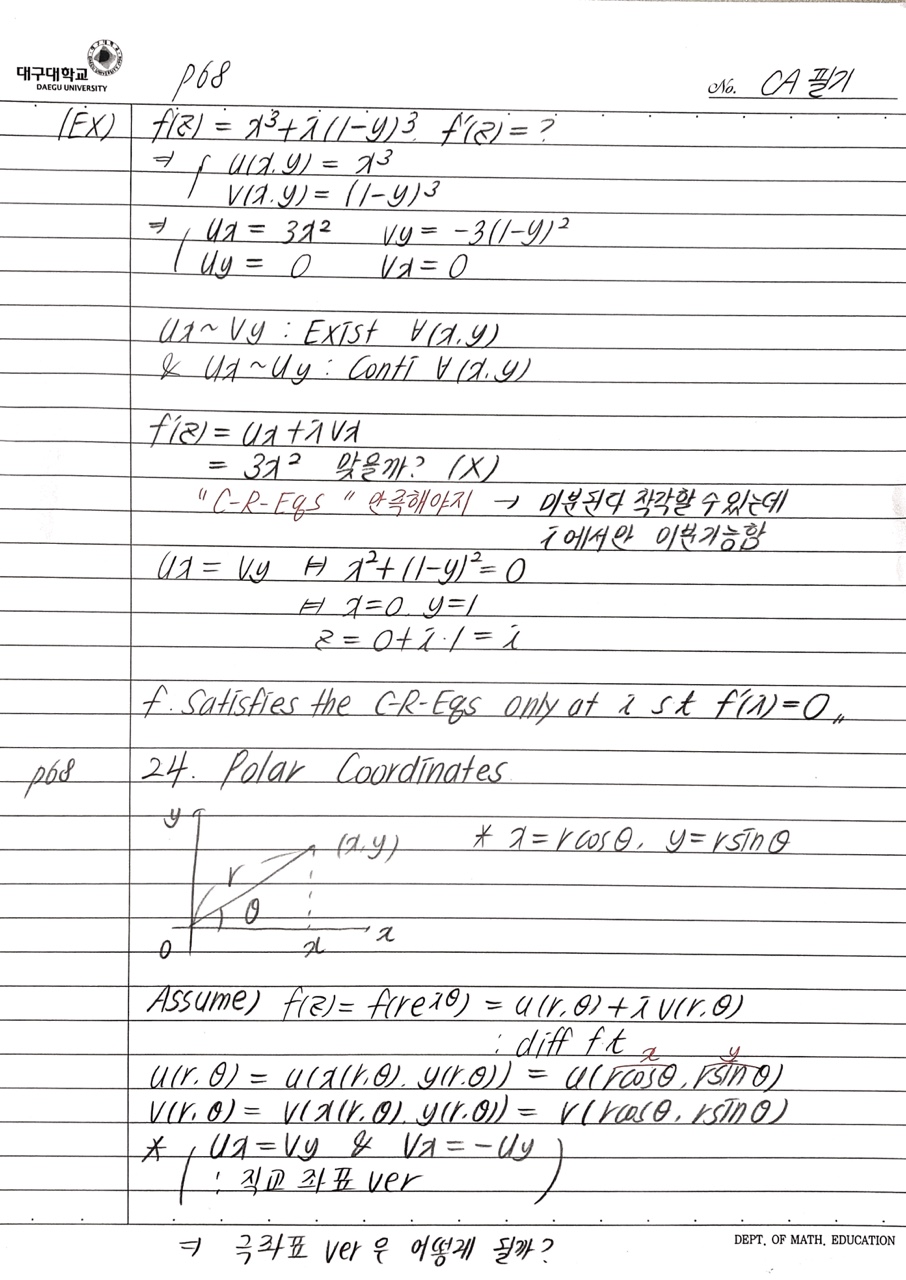 대구대학교
DAEGU UNIVERSITY
p68
No. CA 필기
(EX) f(z) = x³+i(1-y)³. f'(z) = ?
⇒ { u(x.y) = x³
v(x.y) = (1-y)³
⇒ { ux = 3x² vy = -3(1-y)²
uy = 0 vx = 0
ux ~ vy : Exist ∀(x.y)
& ux ~ uy : Conti ∀(x.y)
f'(z) = ux + i vx
= 3x² 맞을까? (X)
"C-R-Eqs" 만족해야지 → 미분된다 착각할 수 있는데
i에서만 미분가능함
ux = vy ⇔ x²+(1-y)² = 0
⇔ x=0. y=1
z = 0+i·1 = i
f. Satisfies the C-R-Eqs only at i s t f'(i)=0 〃
p68 24. Polar Coordinates
y
(x.y) * x=rcosθ. y=rsinθ
r
θ
0 x x
Assume) f(z) = f(re^{iθ}) = u(r.θ) + i v(r.θ)
: diff ft
x y
u(r.θ) = u(x(r.θ). y(r.θ)) = u(rcosθ, rsinθ)
v(r.θ) = v(x(r.θ). y(r.θ)) = r(rcosθ, rsinθ)
* ( ux = vy & vx = -uy )
: 직교 좌표 ver
⇒ 극좌표 ver 은 어떻게 될까?
DEPT. OF MATH. EDUCATION